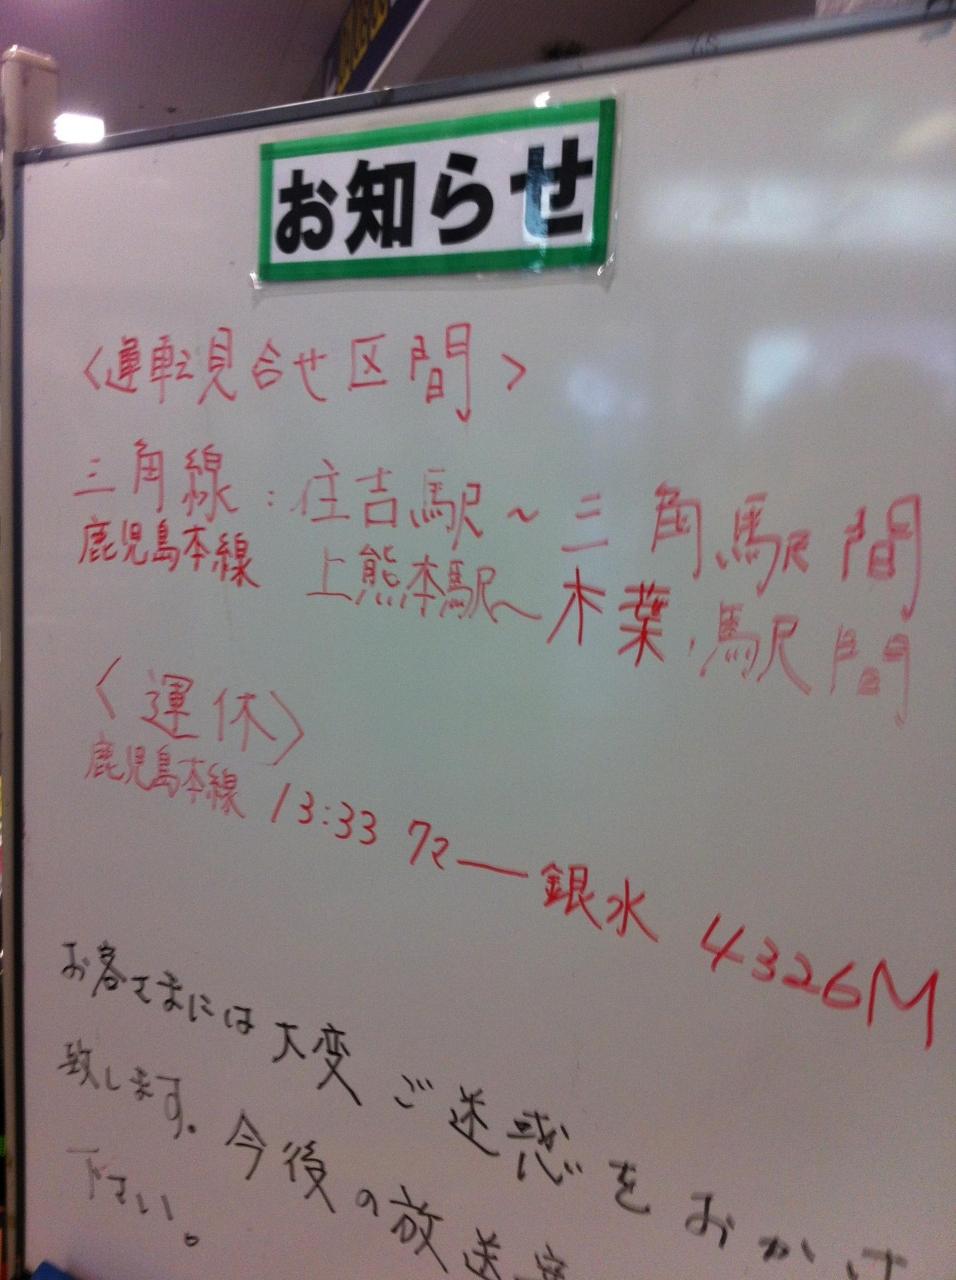 お知らせ
〈運転見合せ区間〉
三角線:住吉駅~三角駅間
鹿児島本線 上熊本駅~木葉駅間
〈運休〉
鹿児島本線 13:33 クマ―銀水 4326M
お客さまには大変ご迷惑をおかけ
致します。今後の放送
下さい。